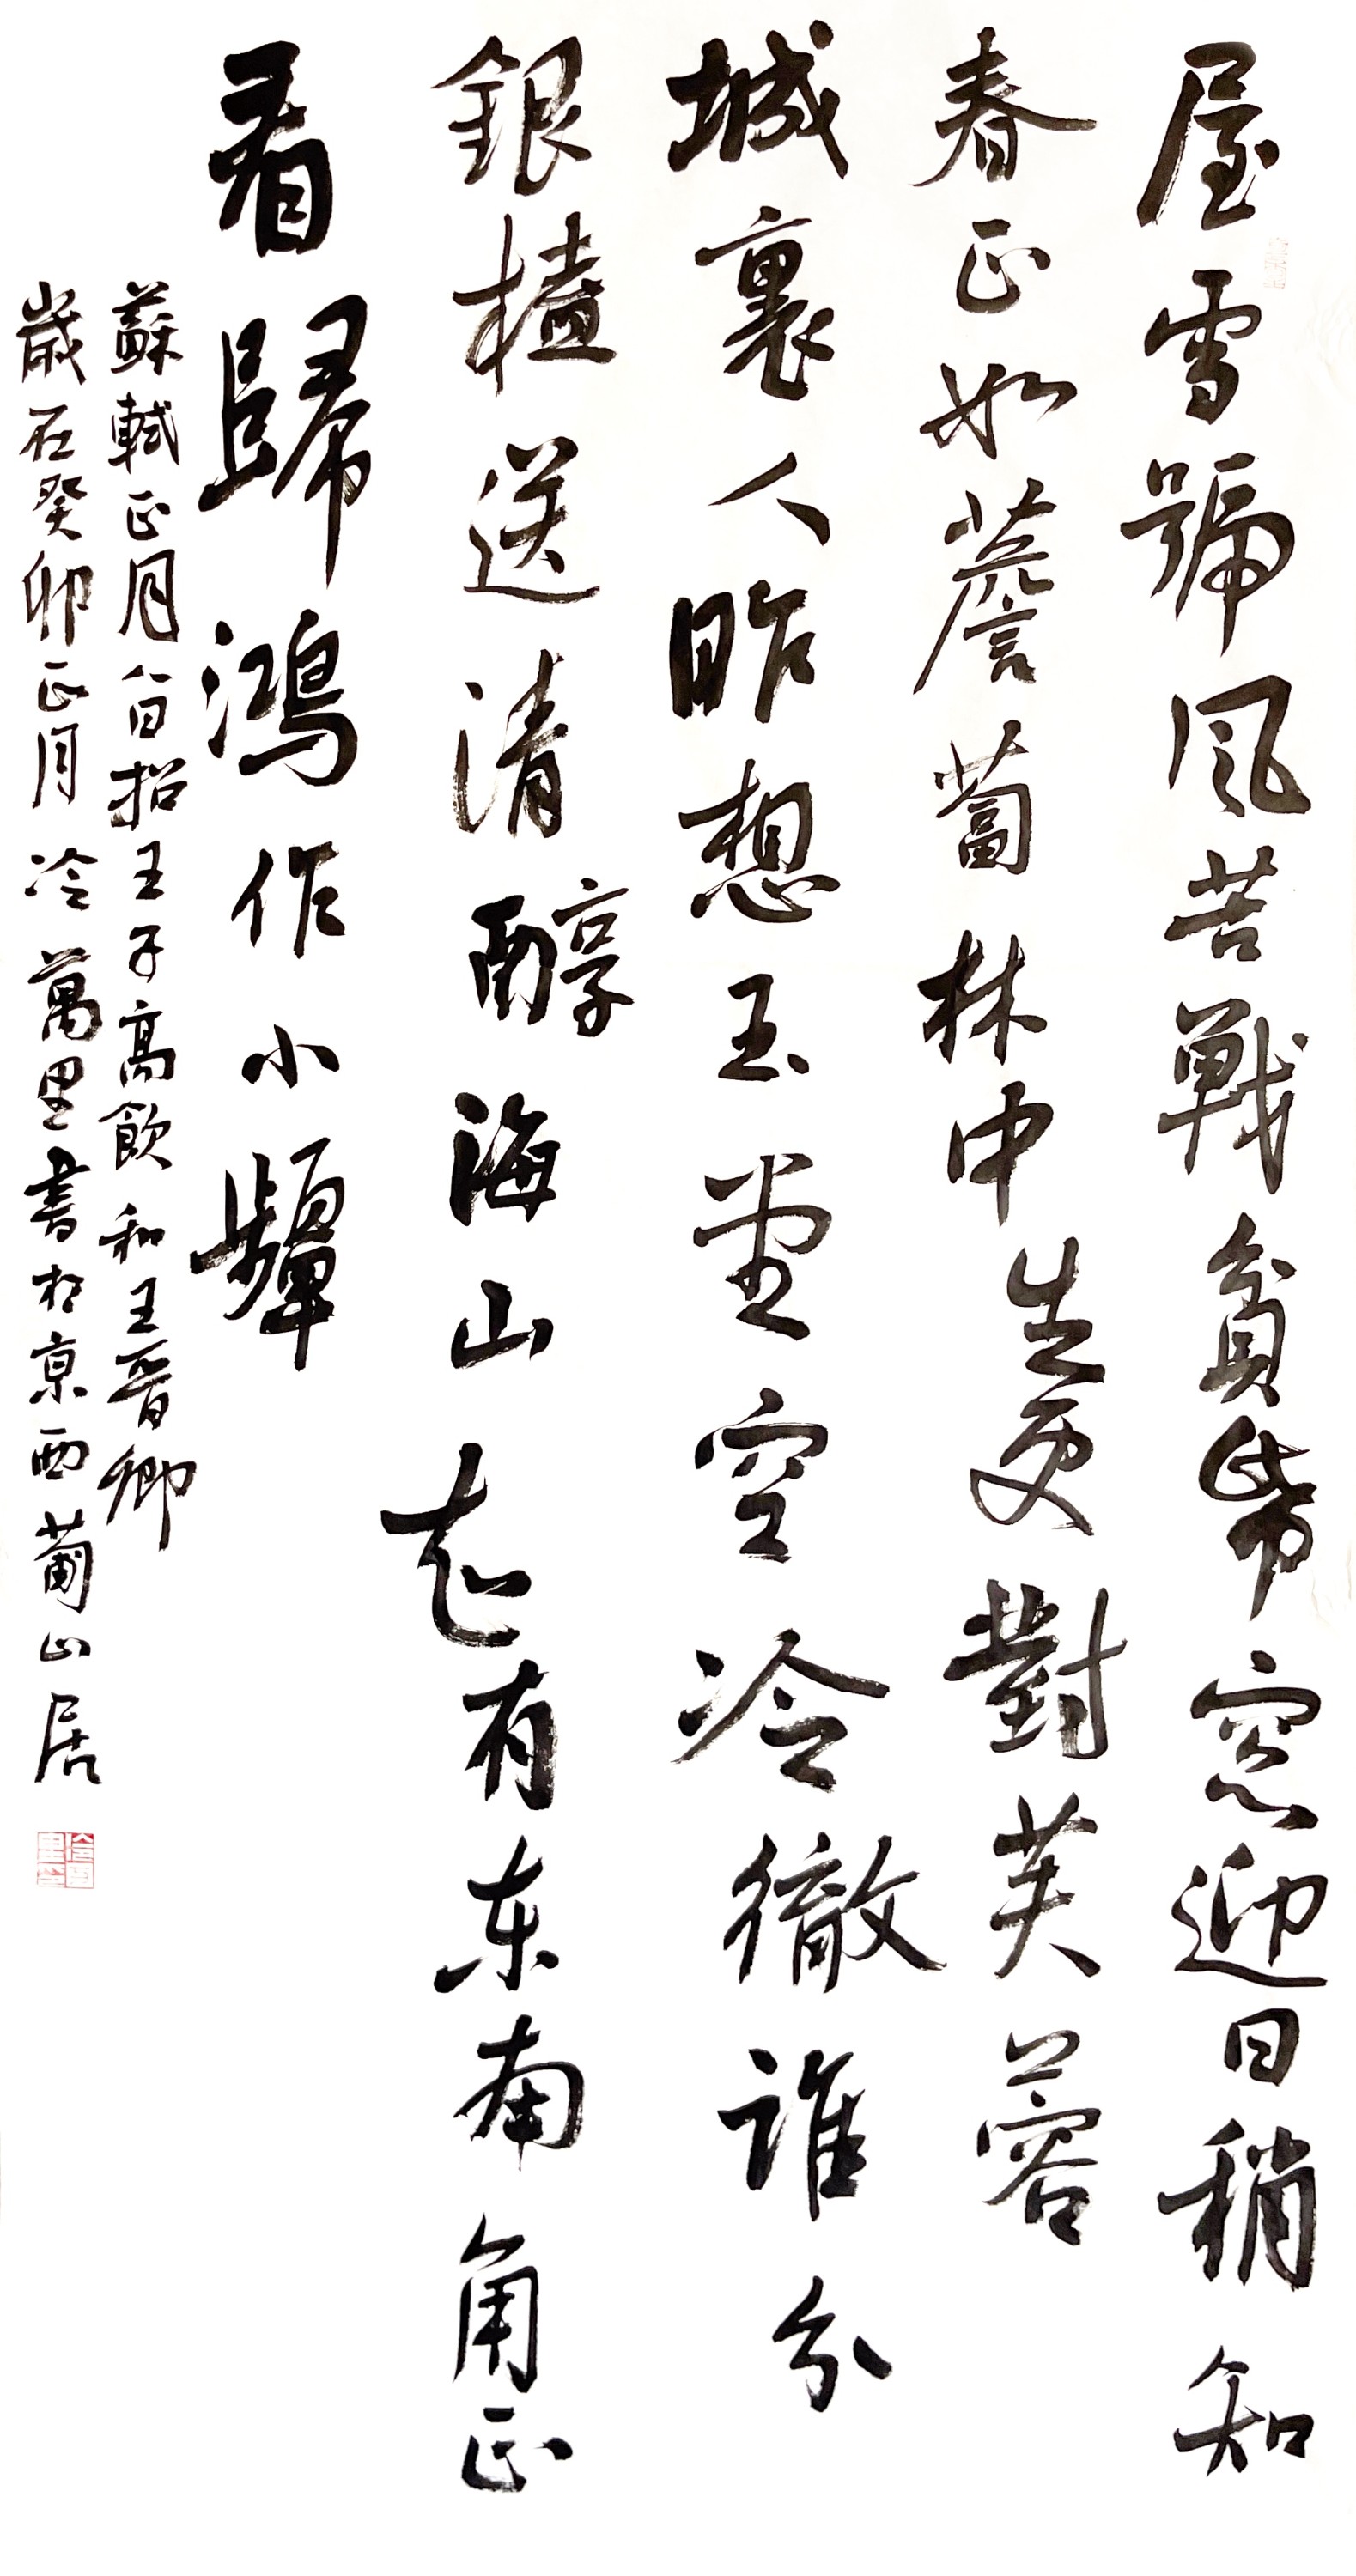 屋雪號風苦戰貧紙窓迎日稍知
春正如薝蔔林中坐更對芙蓉
城裏人昨想玉堂空冷徹誰分
銀榼送清醇海山知有东南角正
看歸鴻作小顰
蘇軾正月八日招王子高飲和王晉卿
歲在癸卯正月冷萬里書於京西蔔山居